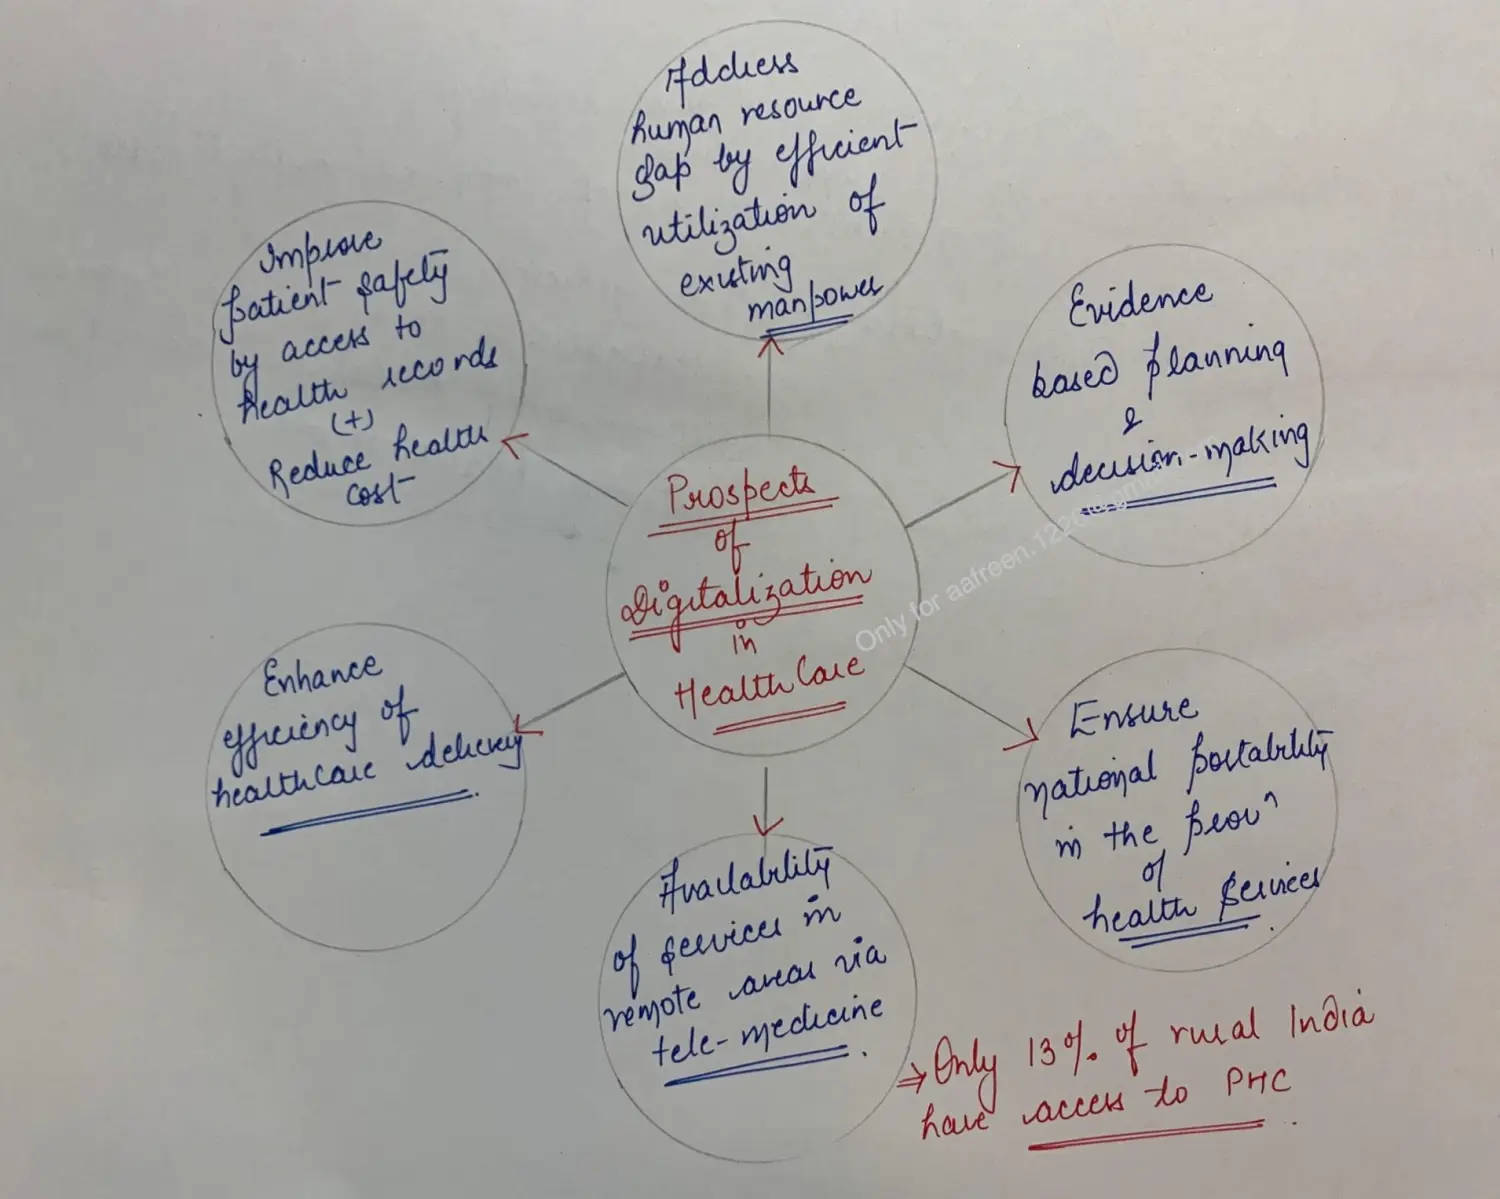 Address
human resource
gap by efficient
utilization of
existing
manpower
Improve
patient safety
by access to
health records
(+)
Reduce health
cost
Evidence
based planning
&
decision-making
Prospects
of
Digitalization
in
HealthCare
Enhance
efficiency of
healthcare delivery
Ensure
national portability
in the provn
of
health services.
Availability
of services in
remote areas via
tele-medicine.
⇒ Only 13% of rural India
have access to PHC.
Only for aafreen.